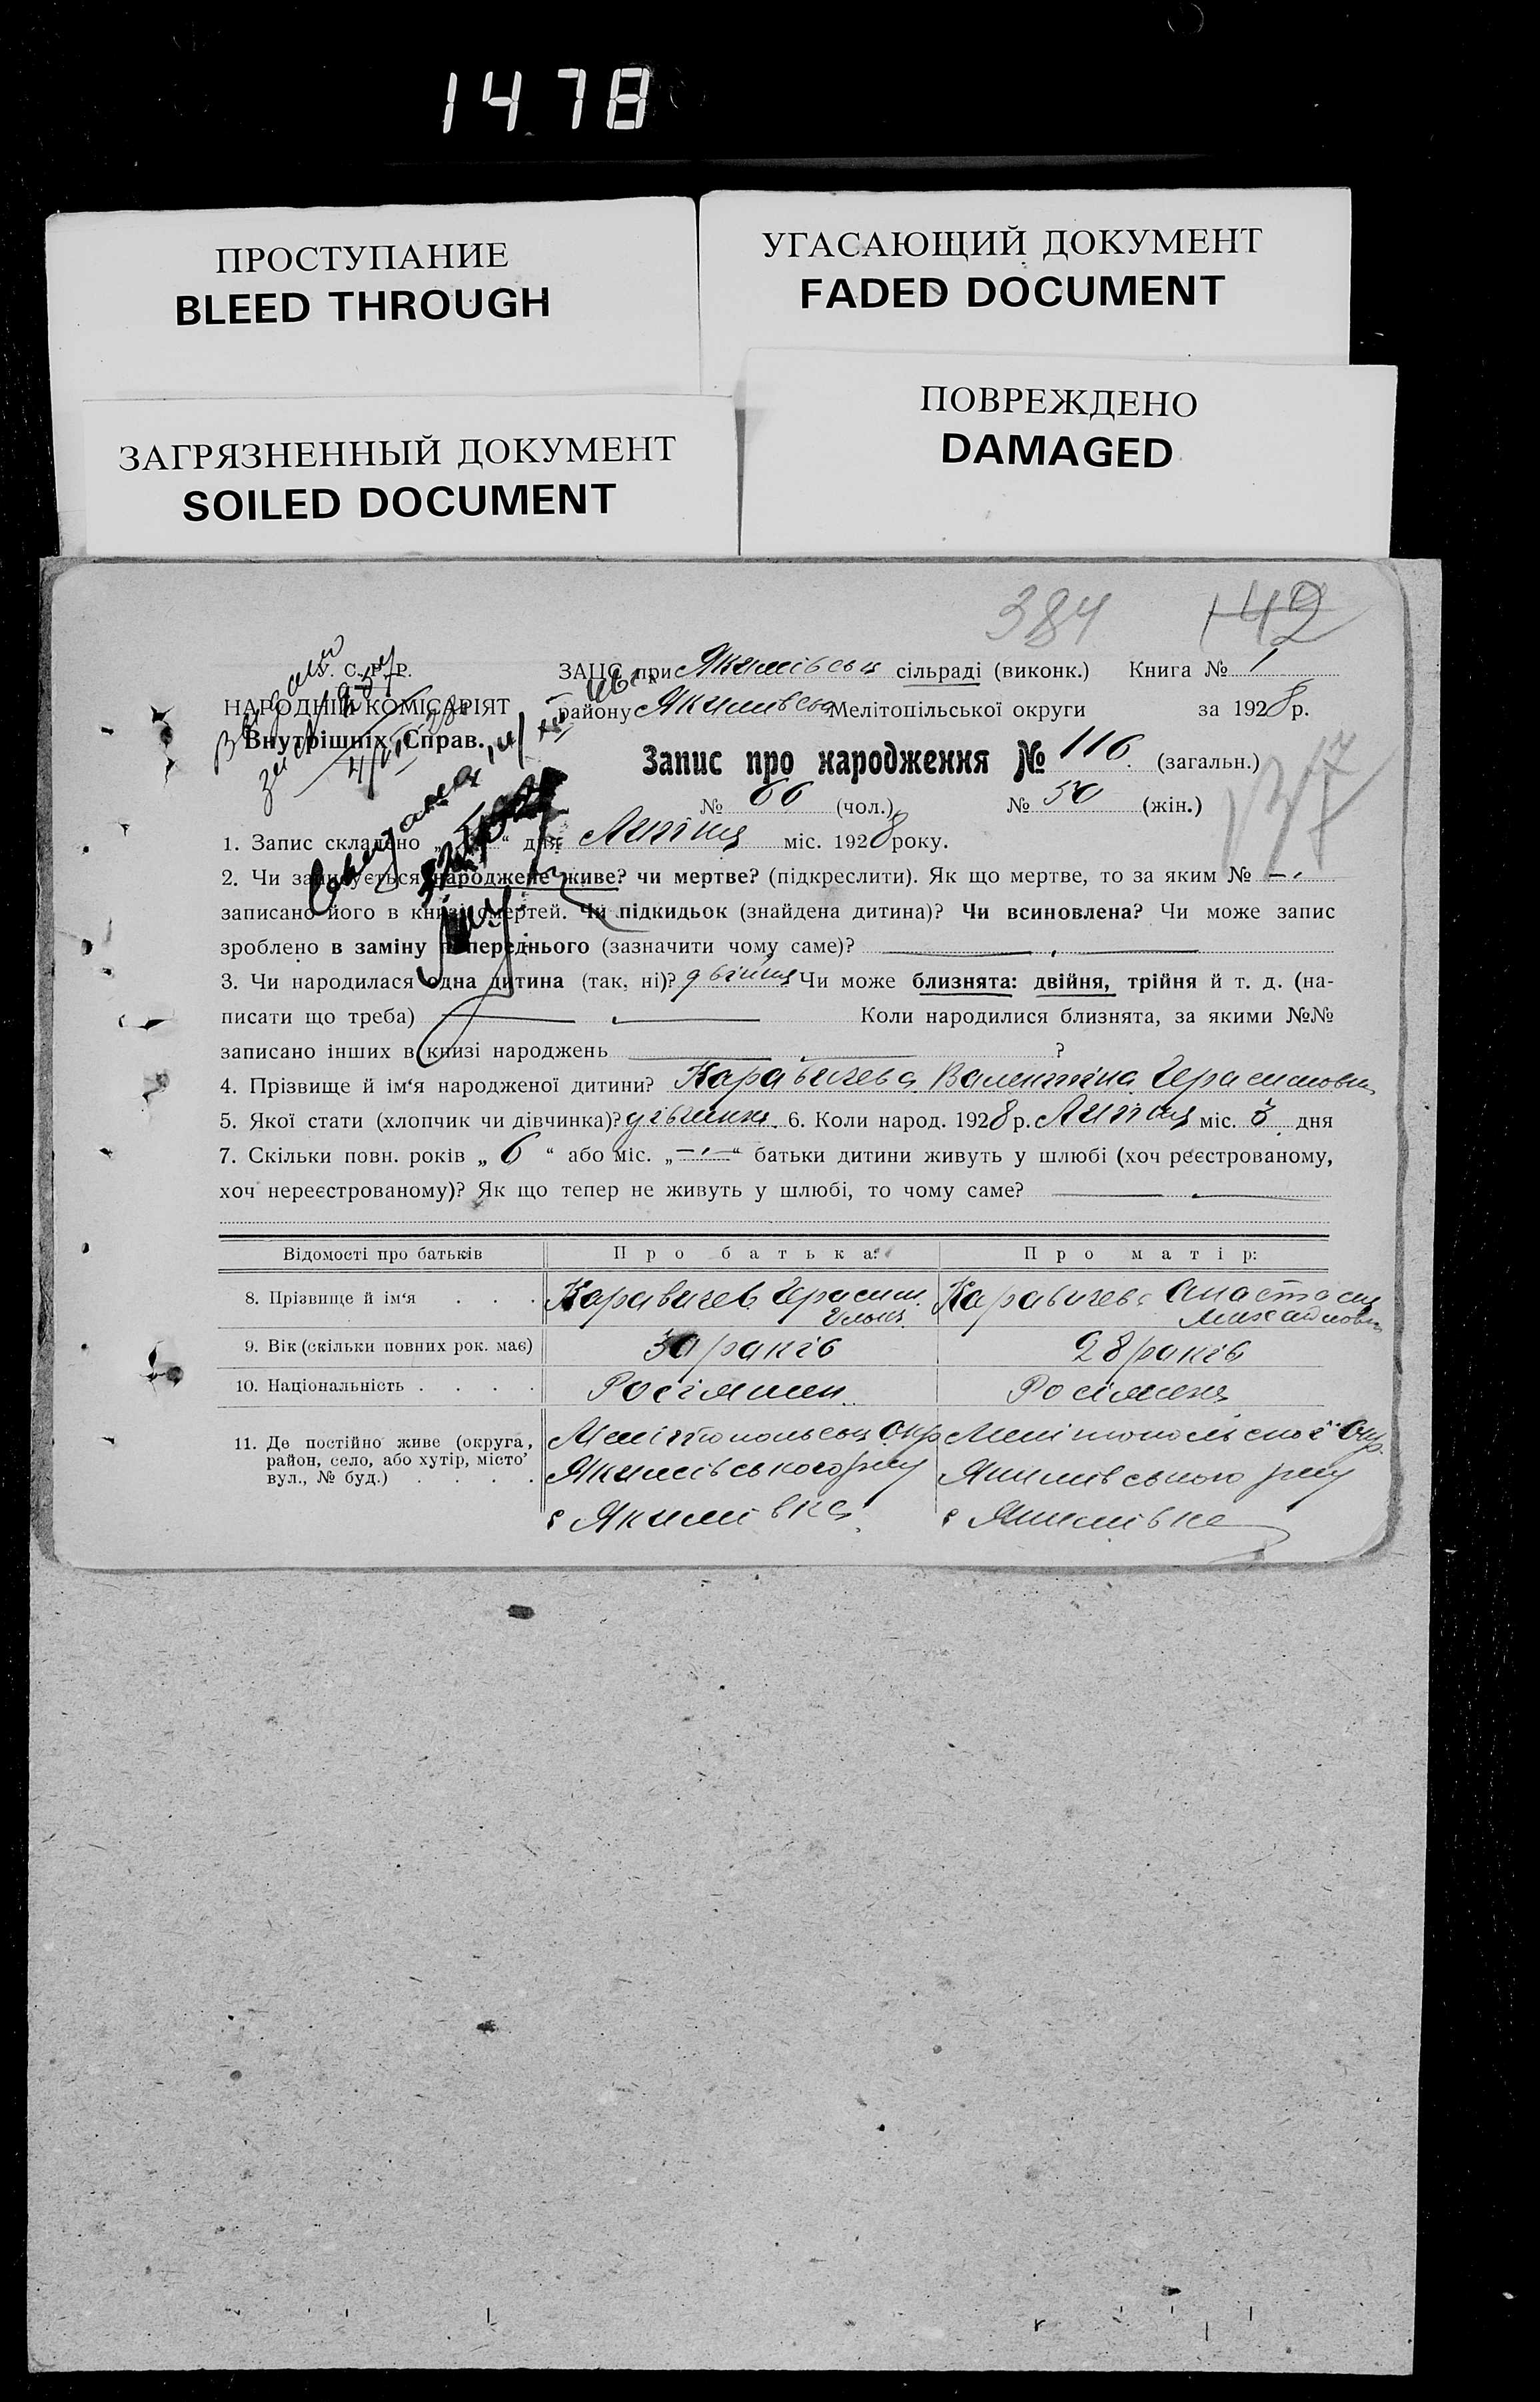 1478
ПРОСТУПАНИЕ
BLEED THROUGH
УГАСАЮЩИЙ ДОКУМЕНТ
FADED DOCUMENT
ЗАГРЯЗНЕННЫЙ ДОКУМЕНТ
SOILED DOCUMENT
ПОВРЕЖДЕНО
DAMAGED
384 142
У. С. Р. Р.
НАРОДНІЙ КОМІСАРІЯТ
Внутрішніх Справ.
ЗАЦС при Якимівськ сільраді (виконк.) Книга № 1
району Мелітопільської округи за 1928 р.
Запис про народження № 116. (загальн.)
№ 66 (чол.) № 50 (жін.)
137
1. Запис складено „ “ дня Липня міс. 1928 року.
2. Чи записується народжене живе? чи мертве? (підкреслити). Як що мертве, то за яким №
записано його в книзі смертей. Чи підкидьок (знайдена дитина)? Чи всиновлена? Чи може запис
зроблено в заміну попереднього (зазначити чому саме)?
3. Чи народилася одна дитина (так, ні)? двійня Чи може близнята: двійня, трійня й т. д. (на-
писати що треба) Коли народилися близнята, за якими №№
записано інших в книзі народжень ?
4. Прізвище й ім‘я народженої дитини? Каравичева Валентина Герасимовна
5. Якої стати (хлопчик чи дівчинка)? дівчинка. 6. Коли народ. 1928 р. Липня міс. 3 дня
7. Скільки повн. років „ 6 “ або міс. „ — “ батьки дитини живуть у шлюбі (хоч реєстрованому,
хоч нереєстрованому)? Як що тепер не живуть у шлюбі, то чому саме?
Відомості про батьків Про батька: Про матір:
8. Прізвище й ім‘я . . . Каравичев Герасим Каравичева Анастасия
Михайловна
9. Вік (скільки повних рок. має) 30 раків 28 раків
10. Національність . . . . Росіянин Росіянка
11. Де постійно живе (округа, Окр Мелітопольської Окр.
район, село, або хутір, місто, Якимівського р-ну Якимівського р-ну
вул., № буд.) . . . .
с Якимівка с Якимівка